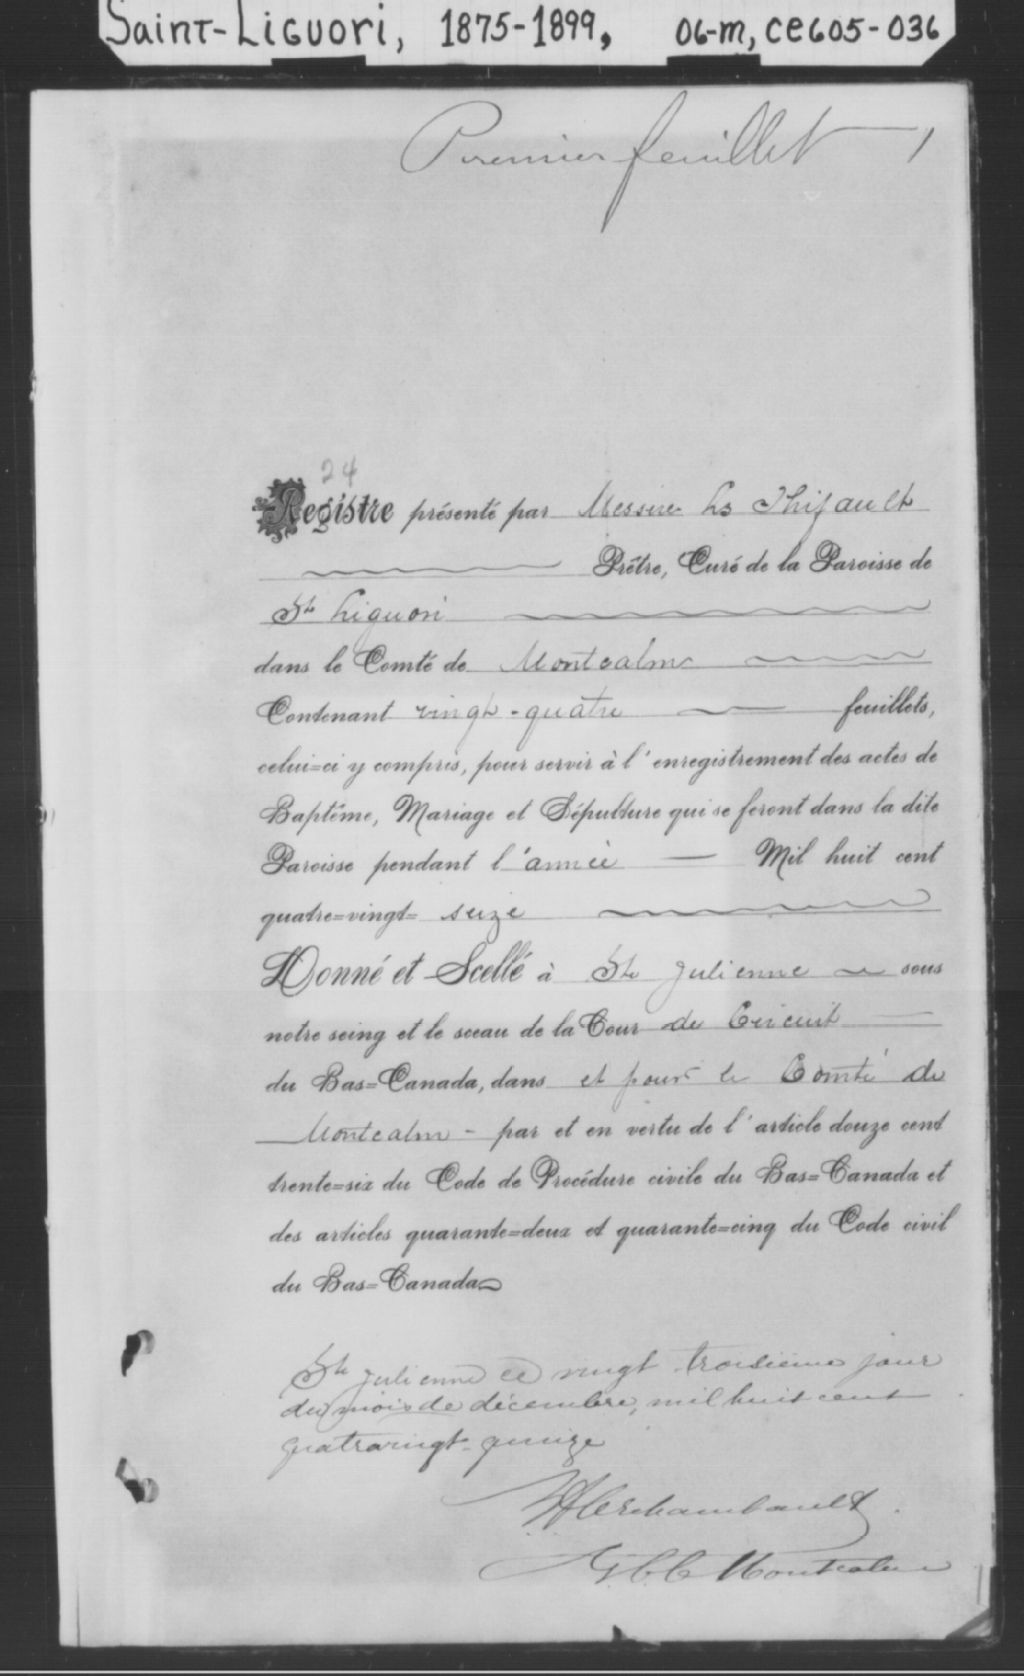 Saint-Liguori, 1875-1899, 06-m, ce605-036
Premier feuillet 1
24
Registre présenté par Messire Ls Thifault
Prêtre, Curé de la Paroisse de
St Liguori
dans le Comté de Montcalm
Contenant vingt-quatre feuillets,
celui=ci y compris, pour servir à l'enregistrement des actes de
Baptême, Mariage et Sépulture qui se feront dans la dite
Paroisse pendant l'année Mil huit cent
quatre=vingt= seize
Donné et Scellé à Ste Julienne sous
notre seing et le sceau de la Cour de Circuit
du Bas=Canada, dans et pour le Comté de
Montcalm - par et en vertu de l'article douze cent
trente=six du Code de Procédure civile du Bas=Canada et
des articles quarante=deux et quarante=cinq du Code civil
du Bas=Canada
Ste Julienne ce vingt troisième jour
du mois de décembre, mil huit cent
quatrevingt-quinze
Archambault
GCC Montcalm